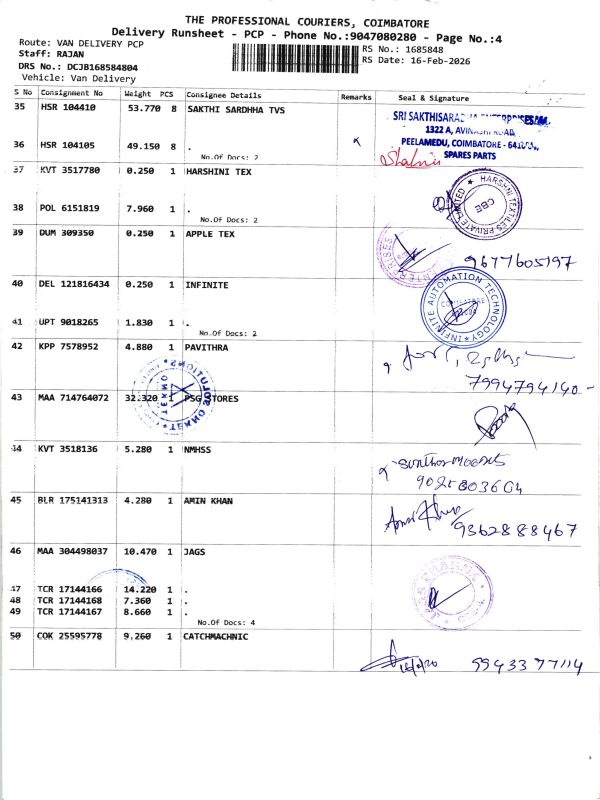 THE PROFESSIONAL COURIERS, COIMBATORE
Delivery Runsheet - PCP - Phone No.:9047080280 - Page No.:4
Route: VAN DELIVERY PCP
RS No.: 1685848
Staff: RAJAN
RS Date: 16-Feb-2026
DRS No.: DCJB168584804
Vehicle: Van Delivery
S No Consignment No Weight PCS Consignee Details Remarks Seal & Signature
35 HSR 104410 53.770 8 SAKTHI SARDHHA TVS
1322 A, AVINASHI ROAD
36 HSR 104105 49.150 8 .
PEELAMEDU, COIMBATORE -
No.Of Docs: 2
SPARES PARTS
37 KVT 3517780 0.250 1 HARSHINI TEX
HARSHNI TEXTILES PRIVATE LIMITED
CBE
38 POL 6151819 7.960 1 .
No.Of Docs: 2
39 DUM 309350 0.250 1 APPLE TEX
9677605197
40 DEL 121816434 0.250 1 INFINITE
INFINITE AUTOMATION TECHNOLOGY
COIMBATORE
41 UPT 9018265 1.830 1 .
No.Of Docs: 2
42 KPP 7578952 4.880 1 PAVITHRA
7994794140-
TEKNO SOLUTIONS
43 MAA 714764072 32.320 1 PSG STORES
44 KVT 3518136 5.280 1 NMHSS
45 BLR 175141313 4.280 1 AMIN KHAN
9362888467
46 MAA 304498037 10.470 1 JAGS
47 TCR 17144166 14.220 1 .
48 TCR 17144168 7.360 1 .
49 TCR 17144167 8.660 1 .
No.Of Docs: 4
50 COK 25595778 9.260 1 CATCHMACHNIC
9943377114